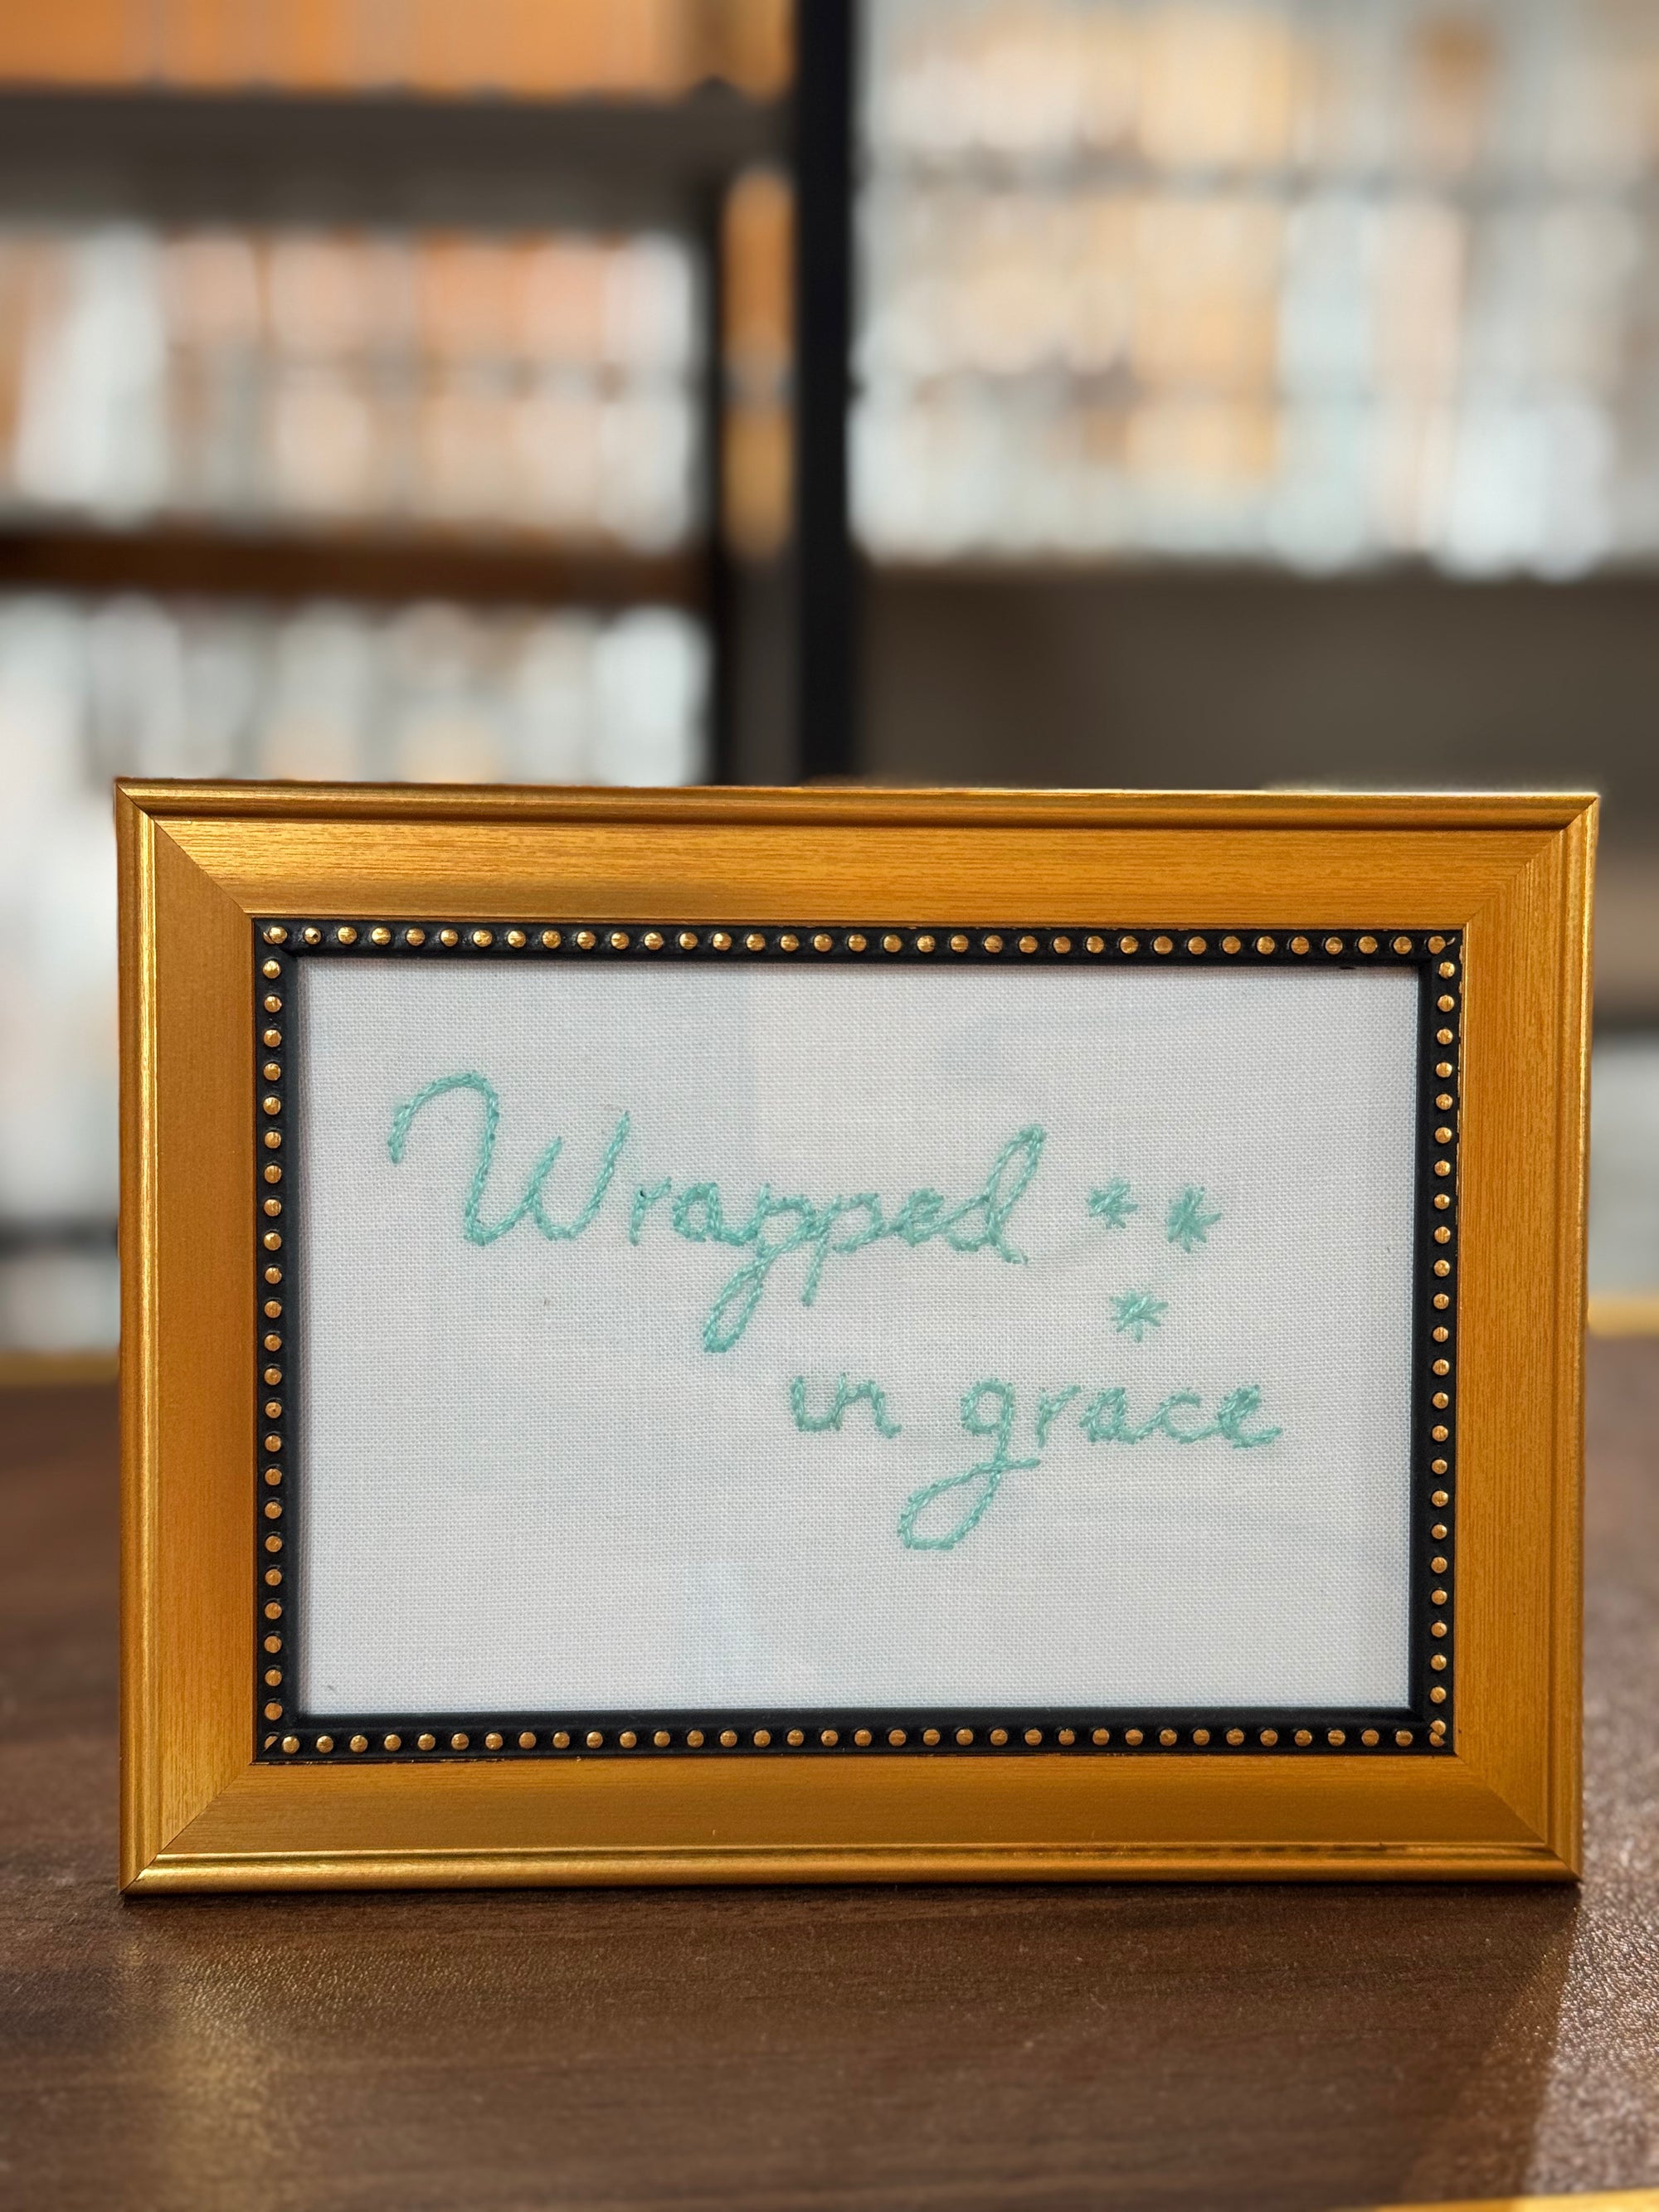 Wrapped **
*
in grace